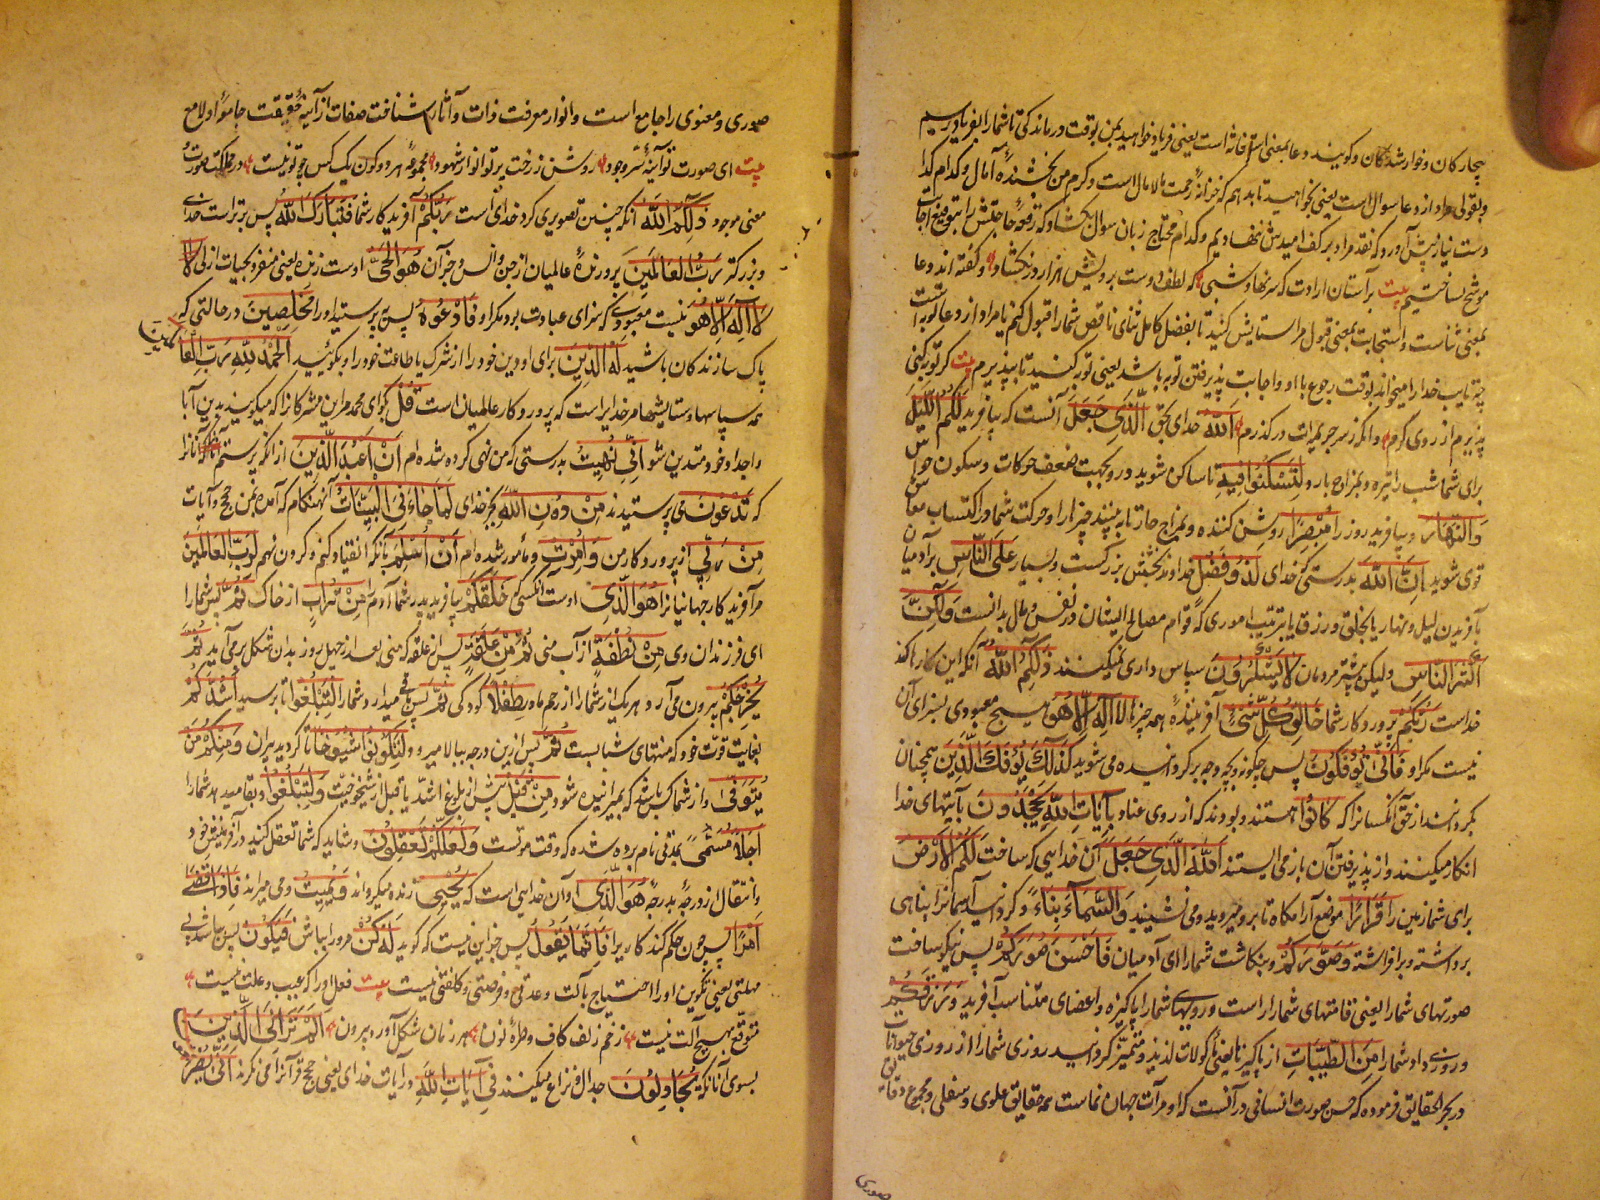 بیچارکان و خوار شدکان و کویند دعا بمعنی استغاثه است یعنی فریاد خواهید بمن بوقت درماندکی تا شما را بفریاد رسیم
و بقولی مراد از دعا سوال است یعنی بخواهید تا بدهم که خزانه رحمت مالامال است و کرم من بخشنده آمال و کدام کدا
دست نیاز پیش آورد که نقد مراد بر کف امیدش ننهادیم و کدام محتاج زبان سوال کشاد که رقعه حاجتش را بتوقیع اجابت
موشح نساختیم بیت بر آستان ارادت که سر نهاد شبی که لطف دوست برویش هزار در نکشاد و کفته اند دعا
بمعنی ثناست و استجابت بمعنی قبول مرا ستایش کنید تا بفضل کامل ثنای ناقص شما را قبول کنم یا مراد از دعا توبه است
چه تایب خدا را میخواند بوقت رجوع با او و اجابت پذیرفتن توبه باشد یعنی توبه کنید تا بپذیرم بیت کر توبه کنی
پذیرم از روی کرم و انکه ز سر جریمه ات درکذرم الله خدای بحق الذی جعل آنست که بیافرید لکم اللیل
برای شما شب را تیره و بمزاج بارد لتسکنوا فیه تا ساکن شوید درو بجهت ضعف حرکات و سکون حواس
والنهار و بیافرید روز را مبصرا روشن کننده و بمزاج حار تا به بینید چیزها را و حرکت شما در اکتساب معاش
قوی شوید ان الله بدرستی که خدای لذو فضل خداوند بخشش بزرکست و بسیار علی الناس بر آدمیان
بآفریدن لیل و نهار یا بخلق و رزق یا بترتیب اموری که قوام مصالح ایشان در نفس و مال بدانست ولکن
اکثر الناس ولیکن بیشتر مردمان لا یشکرون سپاس داری نمیکنند ذلکم الله آنکه این کارها کند
خداست ربکم پرورد کار شما خالق کل شیء آفریننده همه چیزها لا اله الا هو هیچ معبودی بسزای آن
نیست مکر او فانی تؤفکون پس چکونه و بچه وجه برکردانیده می شوید کذلک یؤفک الذین همچنان
بکردانند از حق آنکسانرا که کانوا هستند و بودند که از روی عناد بآیات الله یجحدون بآیتهای خدا
انکار میکنند و از پذیرفتن آن باز می ایستند الله الذی جعل آن خدایی که ساخت لکم الارض
برای شما زمین را قرارا موضع آرامکاه تا برو میروید و می نشینید والسماء بناء و کردانید آسمانرا بنایی
برداشته و برافراشته وصورکم و بنکاشت شما را ای آدمیان فاحسن صورکم پس نیکو ساخت
صورتهای شما را یعنی قامتهای شما را راست و رویهای شما را پاکیزه و اعضای متناسب آفرید ورزقکم
و روزی داد شما را من الطیبات از پاکیزها یعنی مأکولات لذیذ و متمیز کردانید روزی شما را از روزی حیوانات
در بحر الحقایق فرموده که حسن صورت انسانی در آنست که او مرآت جهان نماست همه حقایق علوی و سفلی و مجموع دقایق
صوری
صوری و معنوی را جامع است و انوار معرفت ذات و آثار شناخت صفات از آینه حقیقت جامعه او لامع
بیت ای صورت تو آینه سر وجود روشن ز رخت پرتو انوار شهود مجموعه هر دو کون یک کس چو تو نیست در مملکت صورت
معنی موجود ذلکم الله آنکه چنین تصویری کرد خدای است ربکم آفریدکار شما فتبارک الله پس برتر است خدای
و بزرکتر رب العالمین پرورنده عالمیان از جن و انس و جز آن هو الحی اوست زنده یعنی متفرد بحیات ازلی لا
لا اله الا هو نیست معبودی که سزای عبادت بود مکر او فادعوه پس بپرستید او را مخلصین در حالتی که
پاک سازندکان باشید له الدین برای او دین خود را از شرک یا طاعت خود را و بکوئید الحمد لله رب العا
لمین
همه سپاسها و ستایشها مر خدایراست که پروردکار عالمیان است قل بکوای محمد مر این مشرکانرا که میکویند بدین آبا
واجداد خود متدین شو انی نهیت بدرستی که من نهی کرده شده ام ان اعبد الذین از انکه پرستم آنانرا
که تدعون می پرستید من دون الله بجز خدای لما جاءنی البینات آنهنکام که آمده بمن حجج و آیات
من ربی از پروردکار من وامرت و مأمور شده ام ان اسلم بآنکه انقیاد کنم و کردن نهم لرب العالمین
مر آفریدکار جهانیانرا هو الذی اوست آنکسی که خلقکم بیافرید پدر شما آدم را من تراب از خاک ثم پس شما را
ای فرزندان وی من نطفة از آب منی ثم من علقة پس از علقه که منی بعد از چهل روز بدان شکل برمی آید ثم
یخرجکم بیرون می آرد هر یک از شما را از رحم مادر طفلا کودکی ثم پس باقی میدارد شما را لتبلغوا تا برسید اشدکم
بغایت قوت خود که منتهای شبابست ثم پس ازین درجه ببالا میرود لتکونوا شیوخا تا کردید پیران ومنکم من
یتوفی و از شما کس باشد که بمیرانیده شود من قبل پیش از بلوغ اشد یا قبل از شیخوخیت ولتبلغوا و بقا میدهد شما را
اجلا مسمی بمدتی نام برده شده که وقت موتست ولعلکم تعقلون و شاید که شما تعقل کنید در آفرینش خود
و انتقال از درجه بدرجه هو الذی او آن خدایی است که یحیی زنده میکرداند ویمیت و می میراند فاذا قضی
امرا پس چون حکم کند کاریرا فانما یقول پس جز این نیست که کوید له کن مر او را بباش فیکون پس باشد بی
مهلتی یعنی تکوین او را احتیاج بآلت و عدتی و فرصتی و کلفتی نیست بیت فعل او را که عیب و علت نیست
متوقع بهیچ آلت نیست ز خم زلف کاف و طره نون هر زمان شکل آورد بیرون الم تر الی الذین
بسوی آنانکه یجادلون جدال و نزاع میکنند فی آیات الله در آیات خدای یعنی حجج قرآنرا می نکرند انی یصرفون